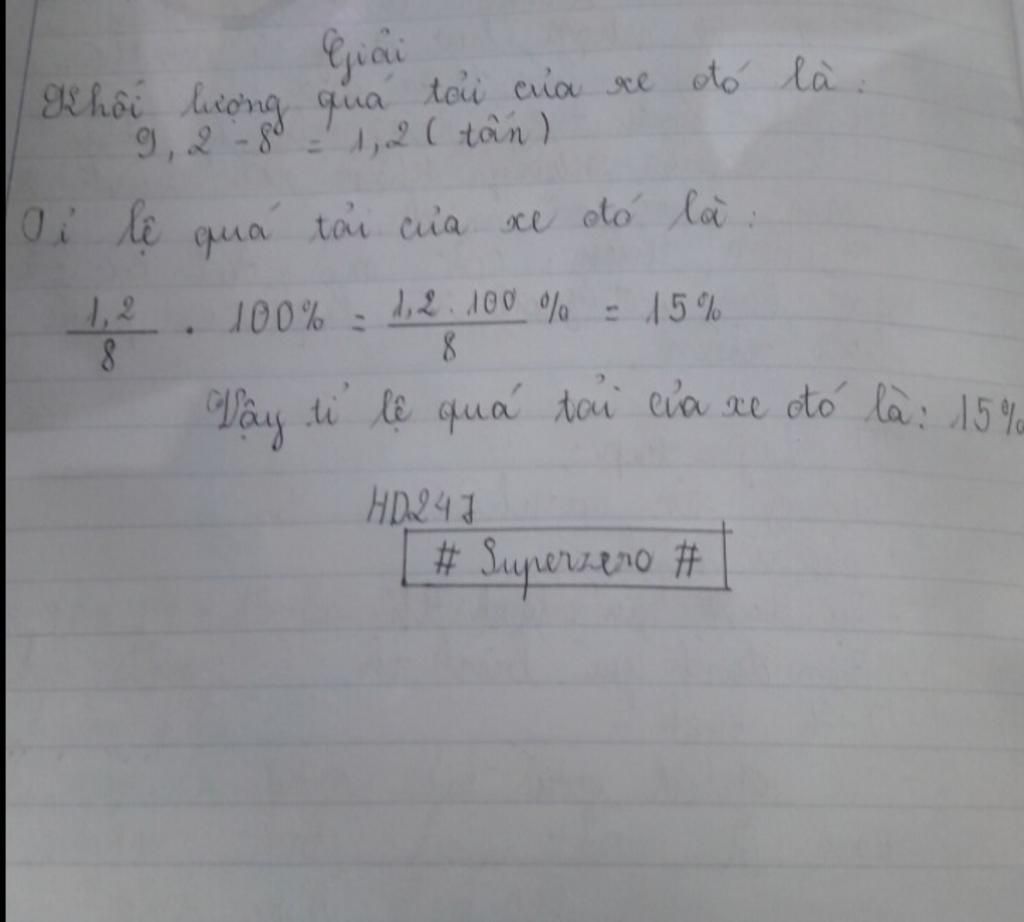 Giải
Khối lượng quá tải của xe đó là:
9,2 - 8 = 1,2 (tấn)
Tỉ lệ quá tải của xe đó là:
1,2/8 . 100% = 1,2.100/8 % = 15%
Vậy tỉ lệ quá tải của xe đó là: 15%
HD247
# Superzero #